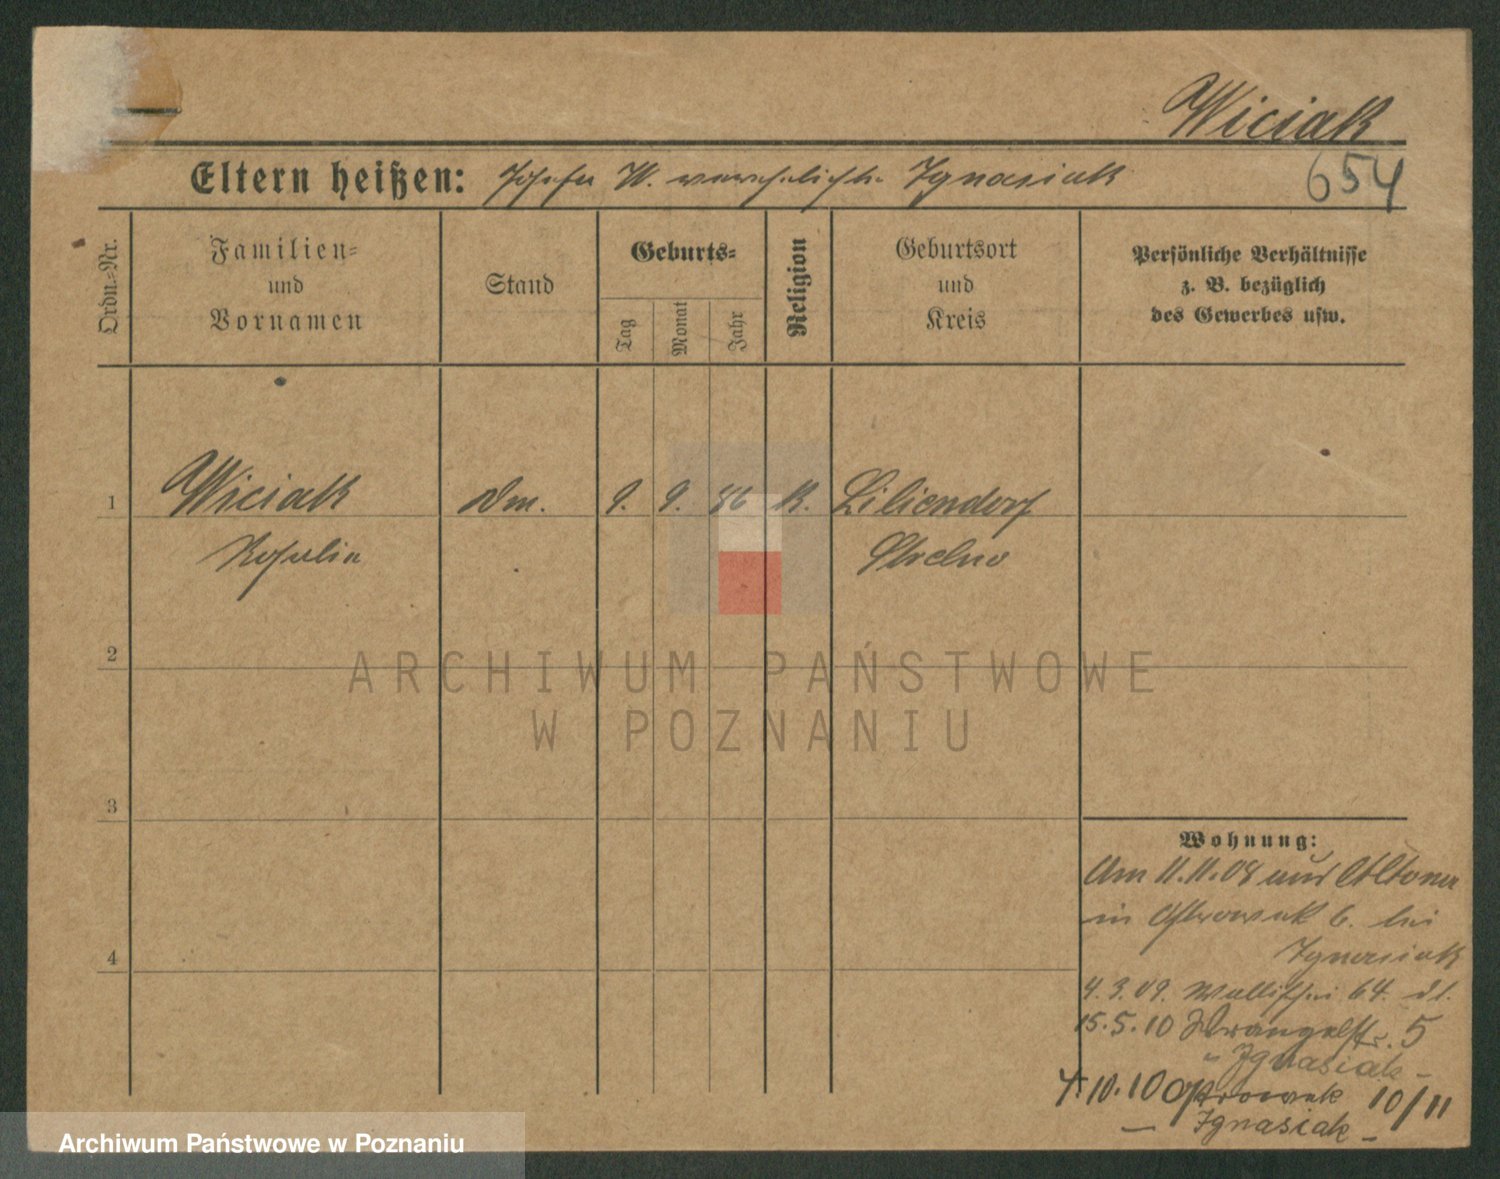 Wiciak
Eltern heißen: Josefa W. verehelichte Ignasiak 654
Ordn.-Nr.
Familien-
und
Vornamen
Stand
Geburts-
Tag
Monat
Jahr
Religion
Geburtsort
und
Kreis
Persönliche Verhältnisse
z. B. bezüglich
des Gewerbes usw.
1 Wiciak 9. 9. 86 K. Liliendorf
Rosalie Strelno
2
ARCHIWUM PAŃSTWOWE
W POZNANIU
3
4
Wohnung:
Am 11.11.08 aus Altona
in Ostrowek 6. bei
Ignasiak
4.3.09. Wallischei 64. dt.
15.5.10 Wrangelstr. 5
" Ignasiak -
4.10.10 Ostrowek 10/11
- Ignasiak -
Archiwum Państwowe w Poznaniu